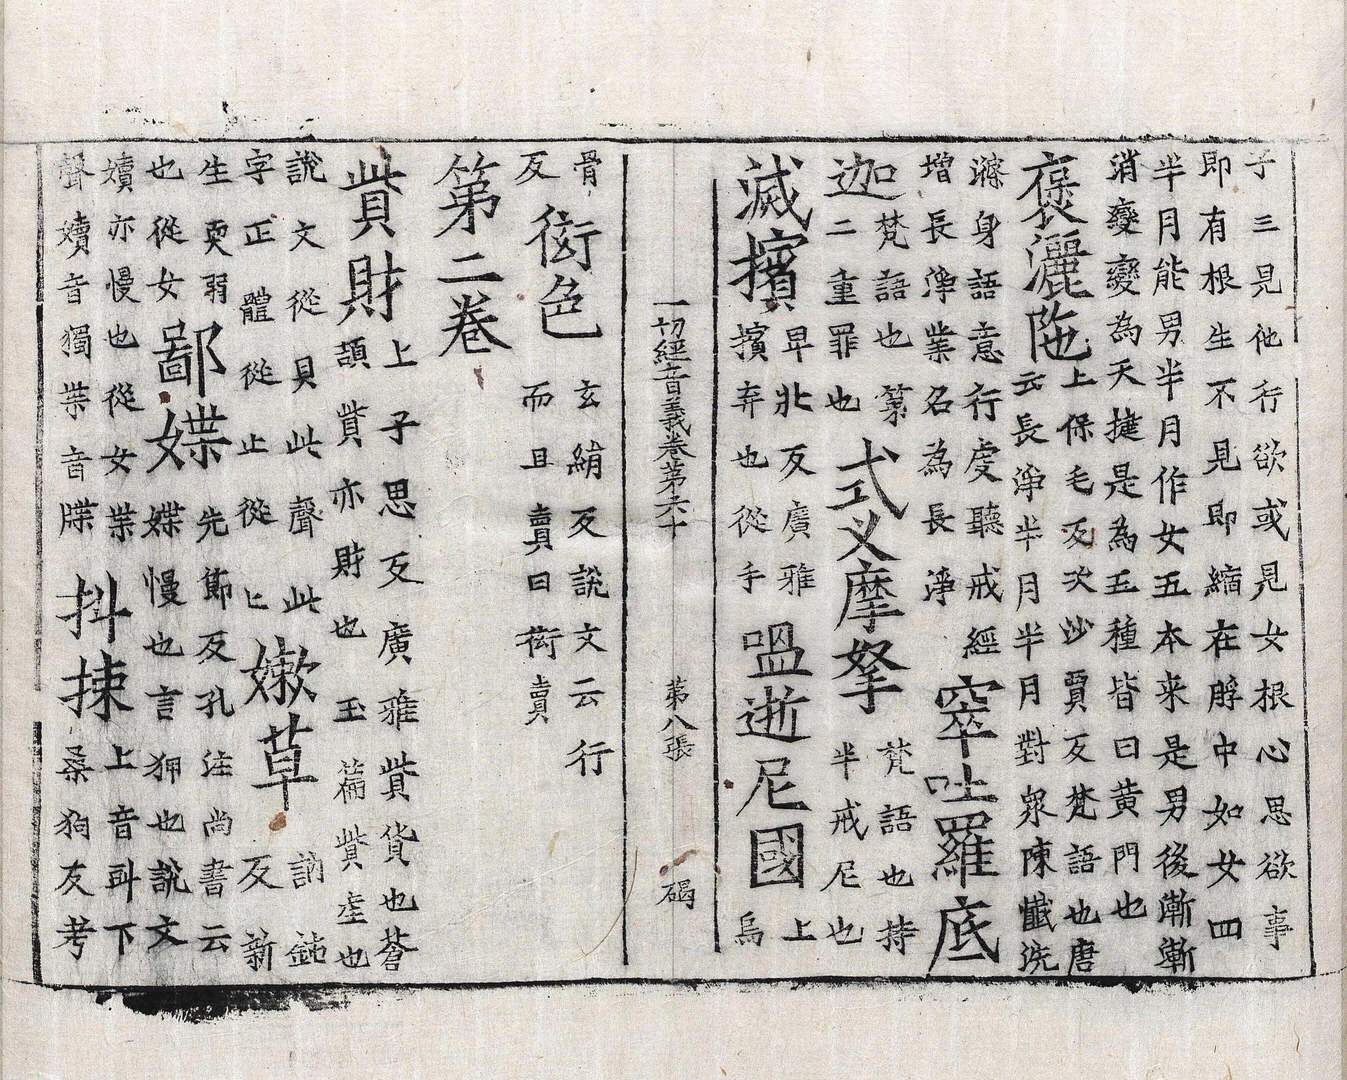 子三見他行欲或見女根心思欲事
即有根生不見即縮在脬中如女四
半月能男半月作女五本来是男後漸漸
消變變為天揵是為五種皆曰黄門也
褒灑陁上保毛反次沙賈反梵語也唐
云長淨半月半月對衆陳懺洗
滌身語意行虔聽戒經
增長淨業名為長淨
窣吐羅底
迦梵語也第
二重罪也
式叉摩拏梵語也持
半戒尼也
滅擯早北反廣雅
擯弃也從手
嗢逝尼國上
烏
一切經音義卷第六十 第八張 碣
骨
反
衒色玄絹反說文云行
而且賣曰衒賣
第二卷
貲財上子思反廣雅貲貨也蒼
頡貲亦財也玉篇貲㐀也
說文從貝此聲此
字正體從止從匕
嫰草訥鈍
反新
生耎弱
也從女
鄙媟先節反孔注尚書云
媟慢也言狎也說文
嬻亦慢也從女枼
聲嬻音獨枼音牒
抖揀上音斗下
桑狗反考